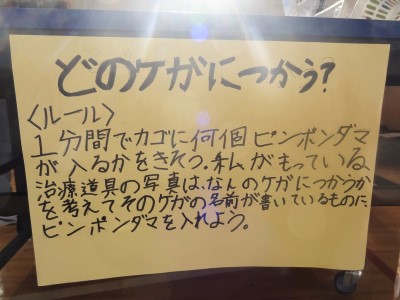 どのケガにつかう?
〈ルール〉
1分間でカゴに何個ピンポンダマ
が入るかをきそう。私がもっている
治療道具の写真は、なんのケガにつかうか
を考えてそのケガの名前が書いているものに、
ピンポンダマを入れよう。